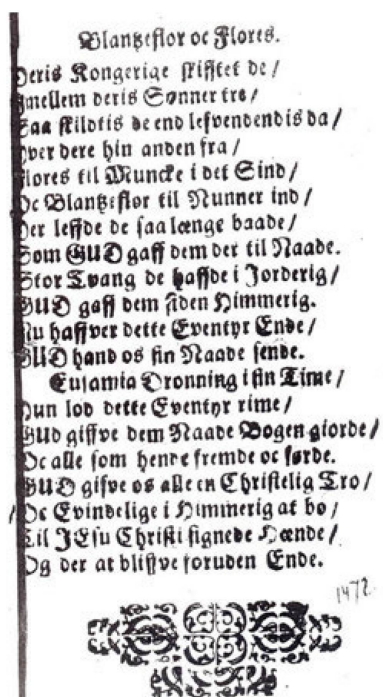 Blantzeflor oc Flores.
Deris Kongerige skifftet de /
Imellem deris Sønner tre /
Saa skildtis de end lefvendendis da /
Hver dere hin anden fra /
Flores til Muncke i det Sind /
Oc Blantzeflor til Nunner ind /
Der leffde de saa længe baade /
Som GUD gaff dem der til Naade.
Stor Tvang de haffde i Jorderig /
GUD gaff dem siden Himmerig.
Nu haffver dette Eventyr Ende /
GUD hand os sin Naade sende.
Eufamia Dronning i sin Time /
Hun lod dette Eventyr rime /
GUd giffve dem Naade Bogen giorde /
Oc alle som hende fremde oc førde.
GUD gifve os alle en Christelig Tro /
Oc Evindelige i Himmerig at bo /
Til JEsu Christi signede Hænde /
Og der at bliffve foruden Ende.
1472.